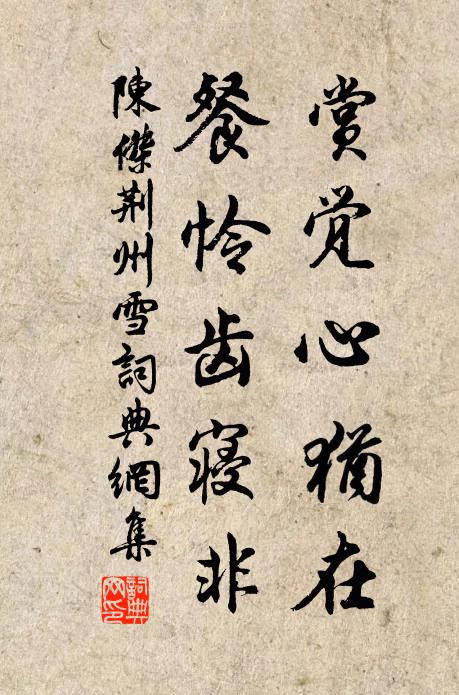 赏觉心犹在
餐怜齿寝非
陳傑荆州雪詞典網集
詞典网印